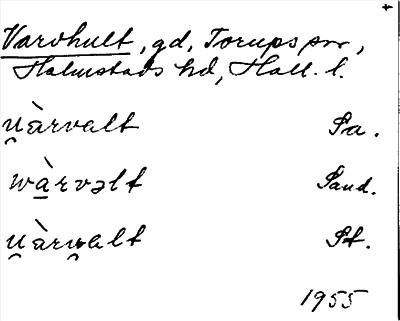 Varvhult, gd, Torups sn,
Halmstads hd, Hall. l.
u̯àrvalt Sa.
wà̠rvəlt Sand.
u̯àru̯alt St.
1955